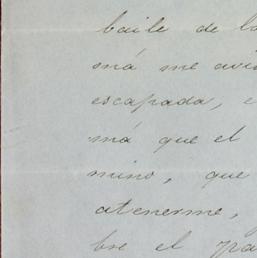 baile de la
má me avi
escapada, e
má que el
mino, que
atenerme,
bre el pa